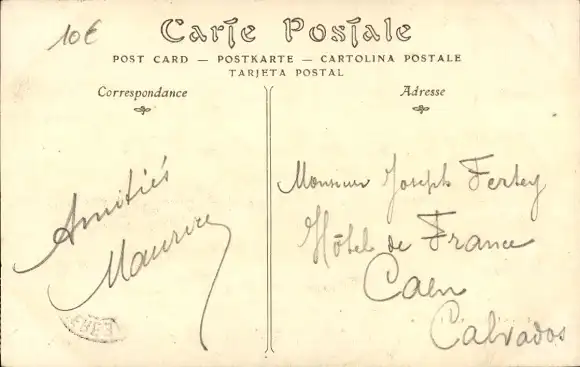 10€
Carte Postale
POST CARD — POSTKARTE — CARTOLINA POSTALE
TARJETA POSTAL
Correspondance
Adresse
Amitiés
Maurice
Monsieur Joseph Fertey
Hôtel de France
Caen
Calvados